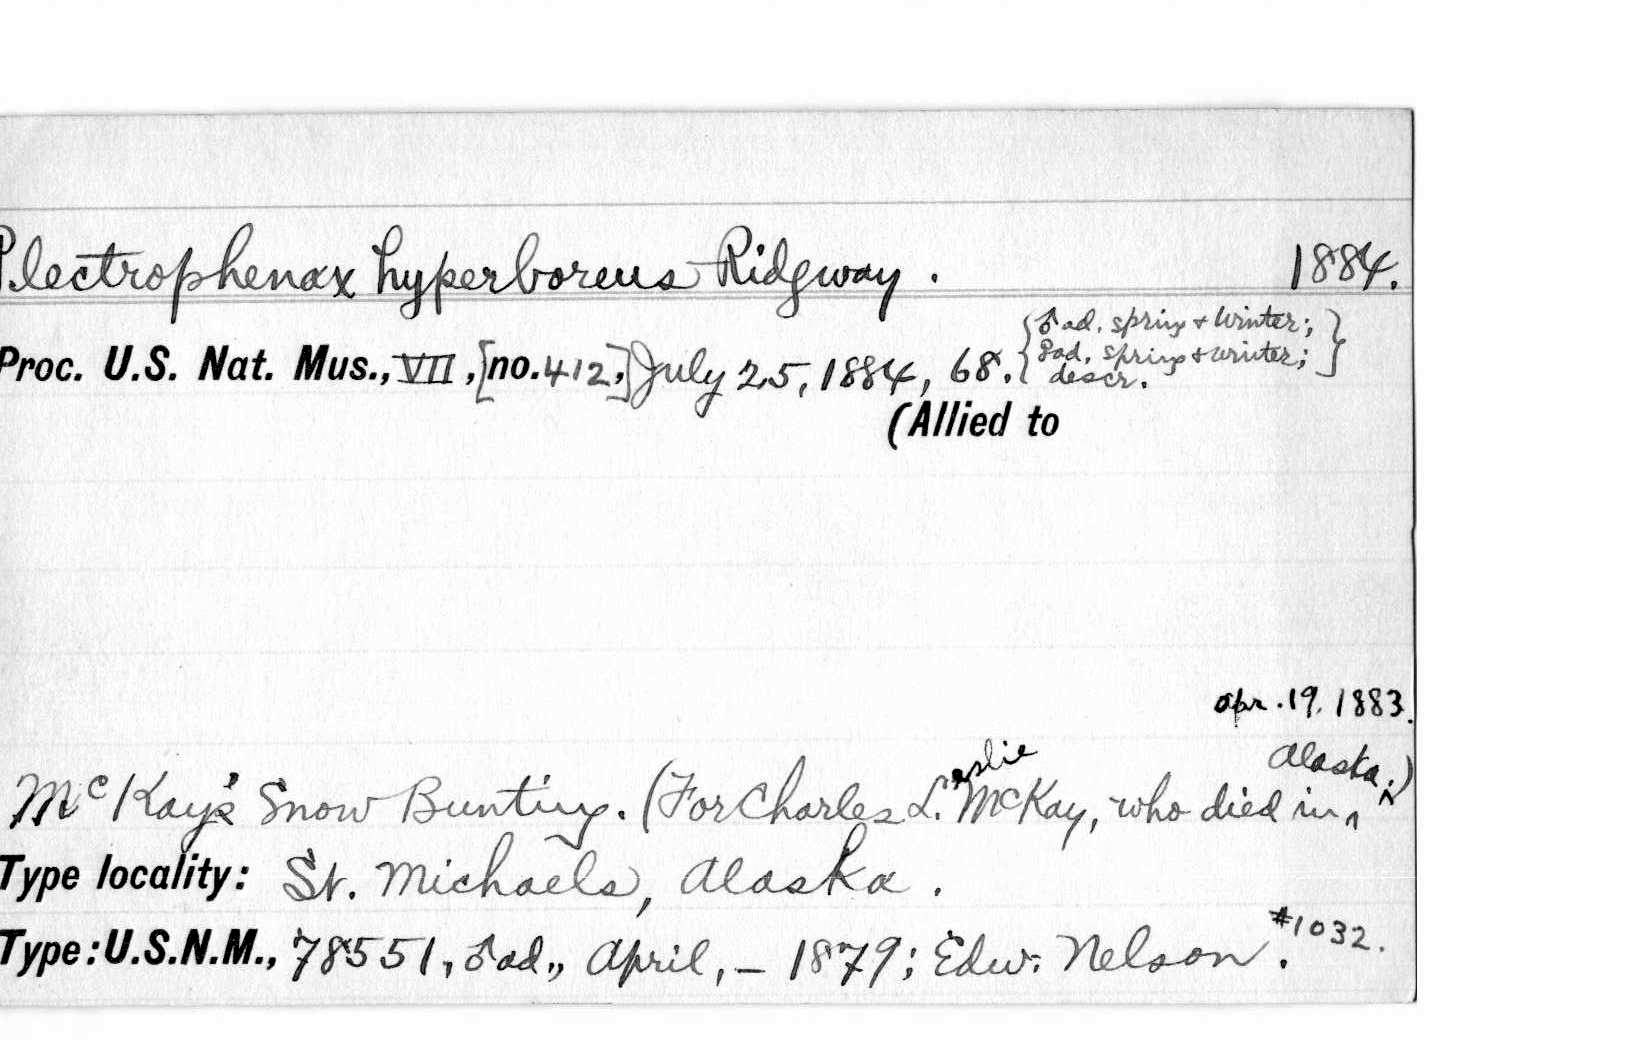 Plectrophenax hyperboreus Ridgway. 1884.
Proc. U.S. Nat. Mus., VII, [no. 412,] July 25, 1884, 68. {♂ad. spring + winter;
♀ad. spring + winter;
descr.}
(Allied to
apr. 19. 1883.
Alaska.)
McKay's Snow Bunting. (For Charles Leslie McKay, who died in ^
Type locality: St. Michaels, Alaska.
Type: U.S.N.M., 78551, ♂ad., April, – 1879; Edw. Nelson. #1032.